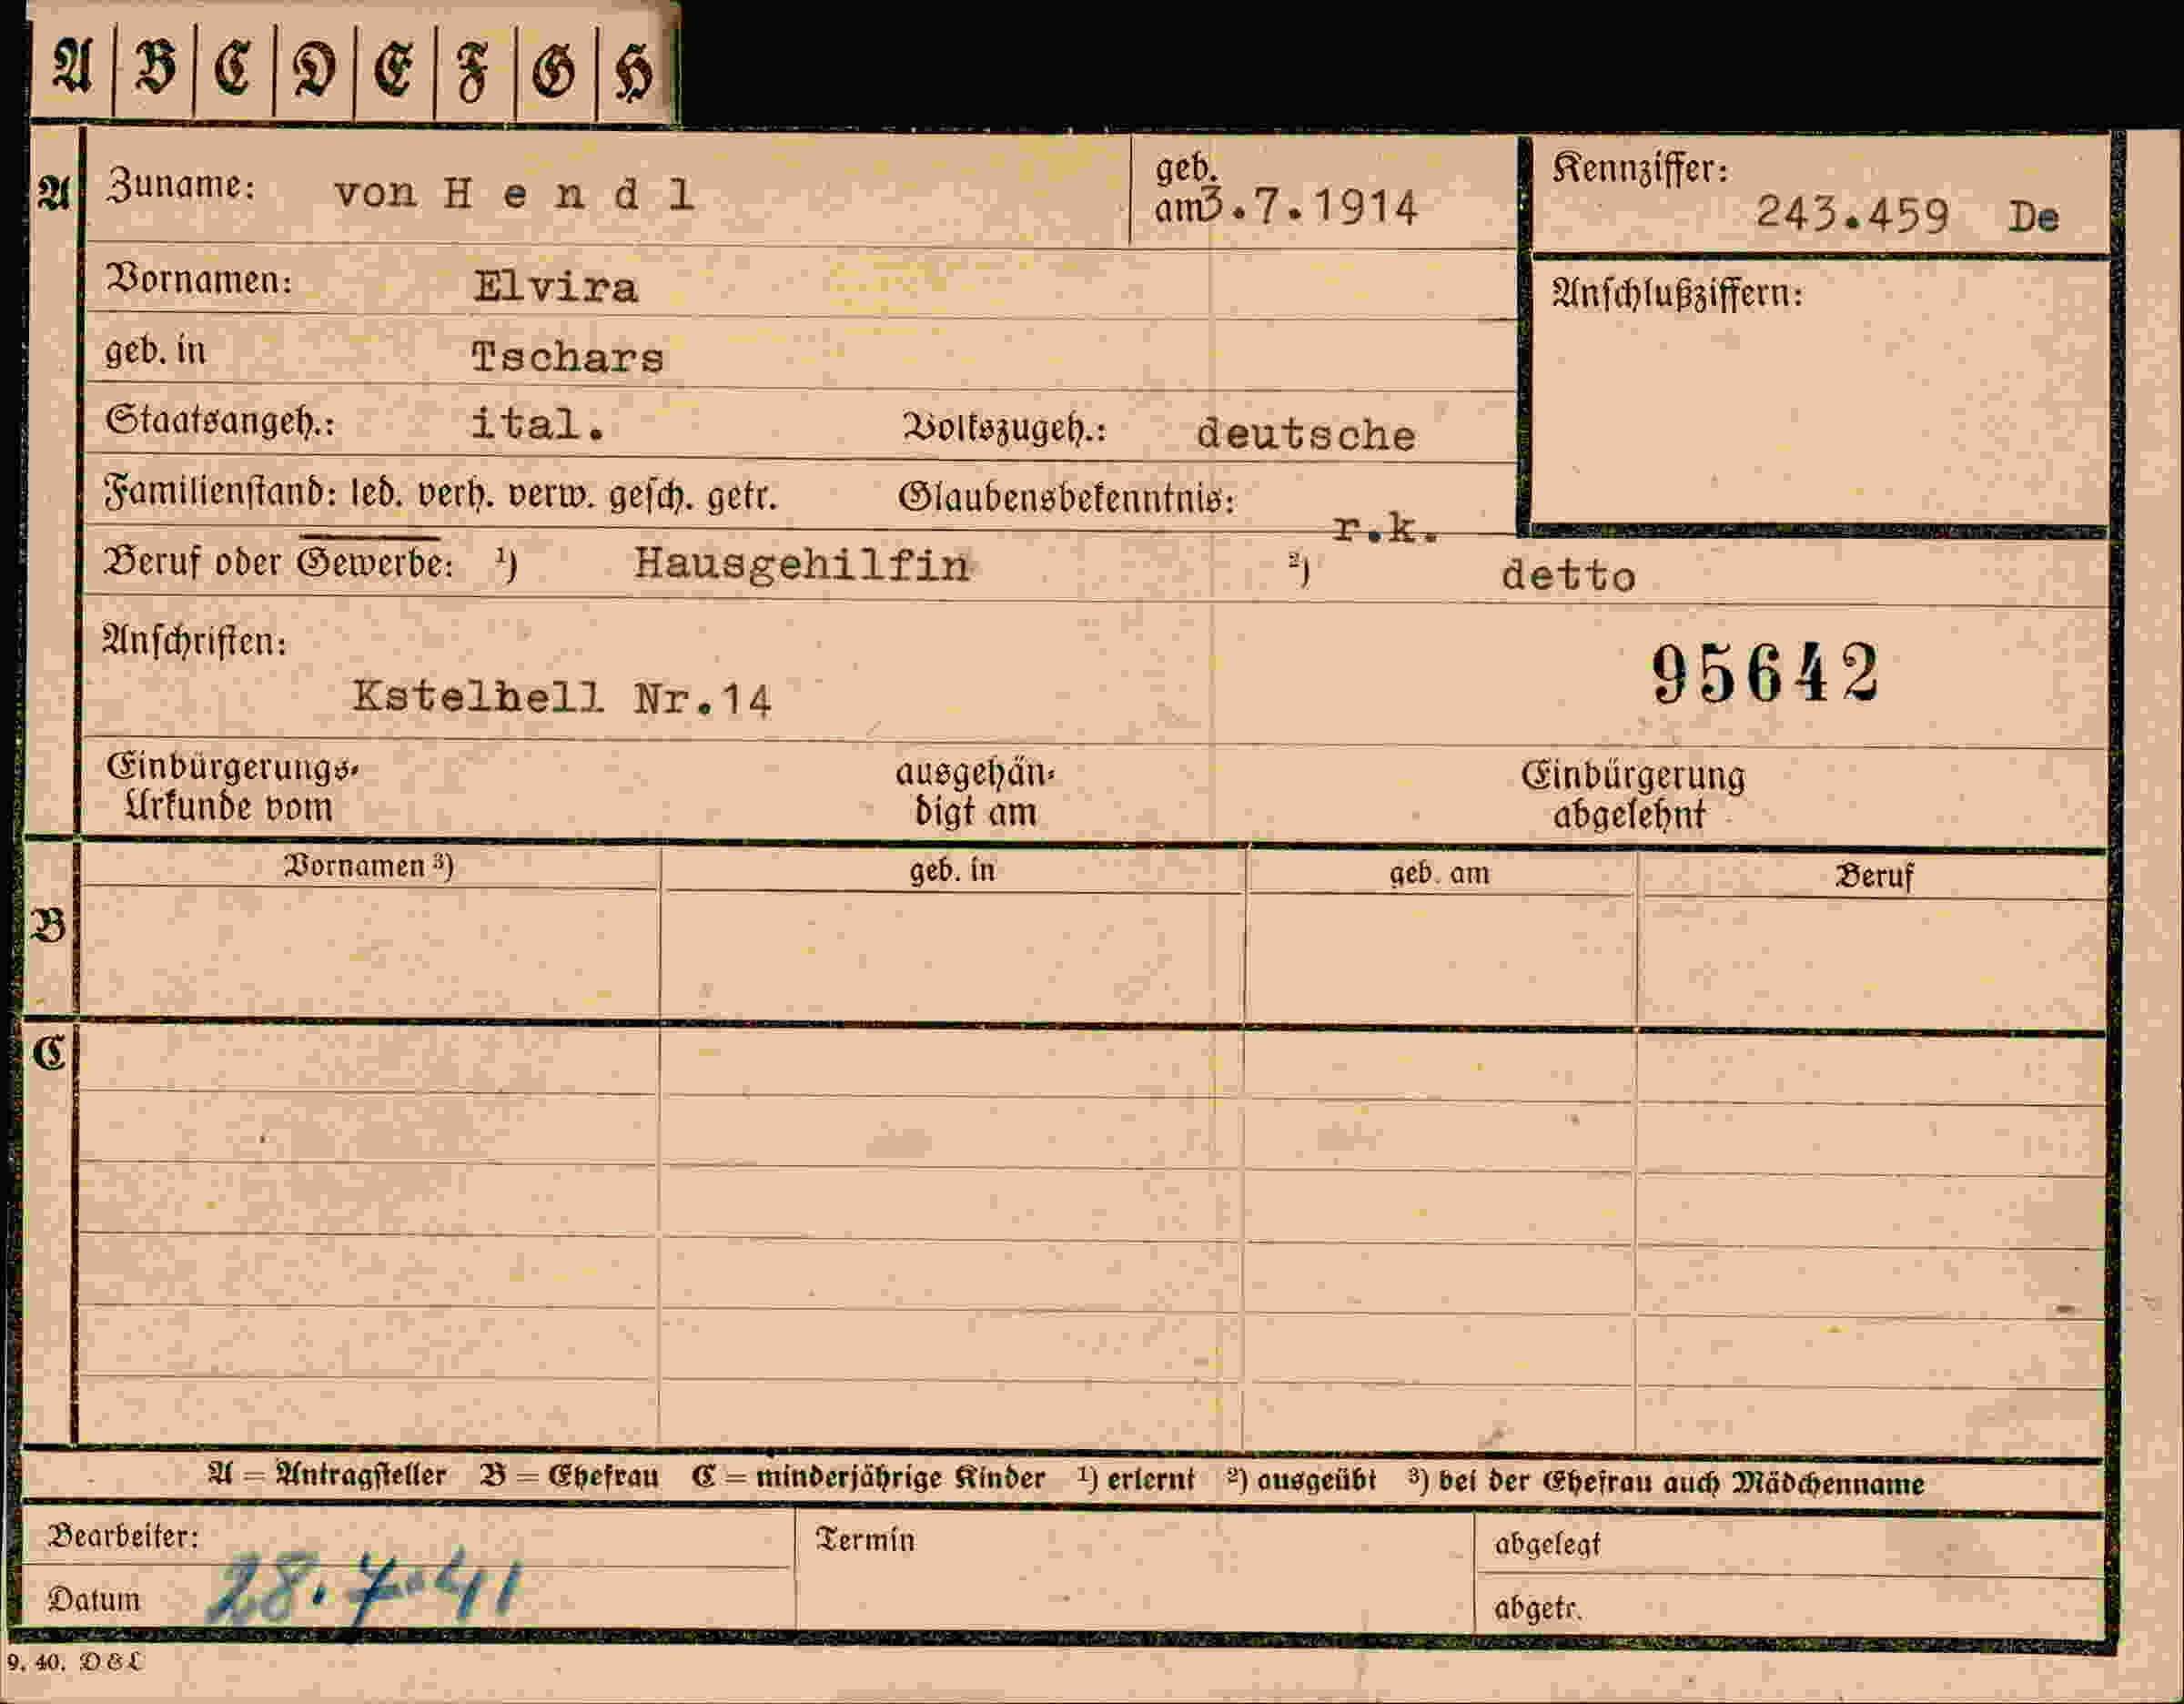 A B C D E F G H
A Zuname: von H e n d l geb. am 3.7.1914 Kennziffer: 243.459 De
Vornamen: Elvira Anschlußziffern:
geb. in Tschars
Staatsangeh.: ital. Volkszugeh.: deutsche
Familienstand: led. verh. verw. gesch. getr. Glaubensbekenntnis: r.k.
Beruf oder Gewerbe: ¹) Hausgehilfin ²) detto
Anschriften: 95642
Kstelbell Nr.14
Einbürgerungs- ausgehän- Einbürgerung
Urkunde vom digt am abgelehnt
Vornamen ³) geb. in geb. am Beruf
B
C
A = Antragsteller B = Ehefrau C = minderjährige Kinder ¹) erlernt ²) ausgeübt ³) bei der Ehefrau auch Mädchenname
Bearbeiter: Termin abgelegt
Datum 28.7.41 abgetr.
9. 40. D & L